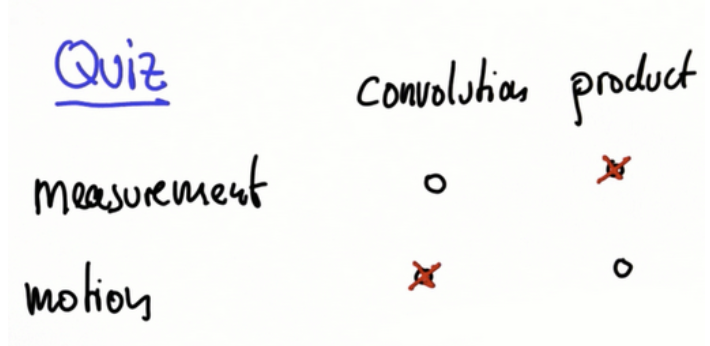 Quiz
convolution product
measurement
motion